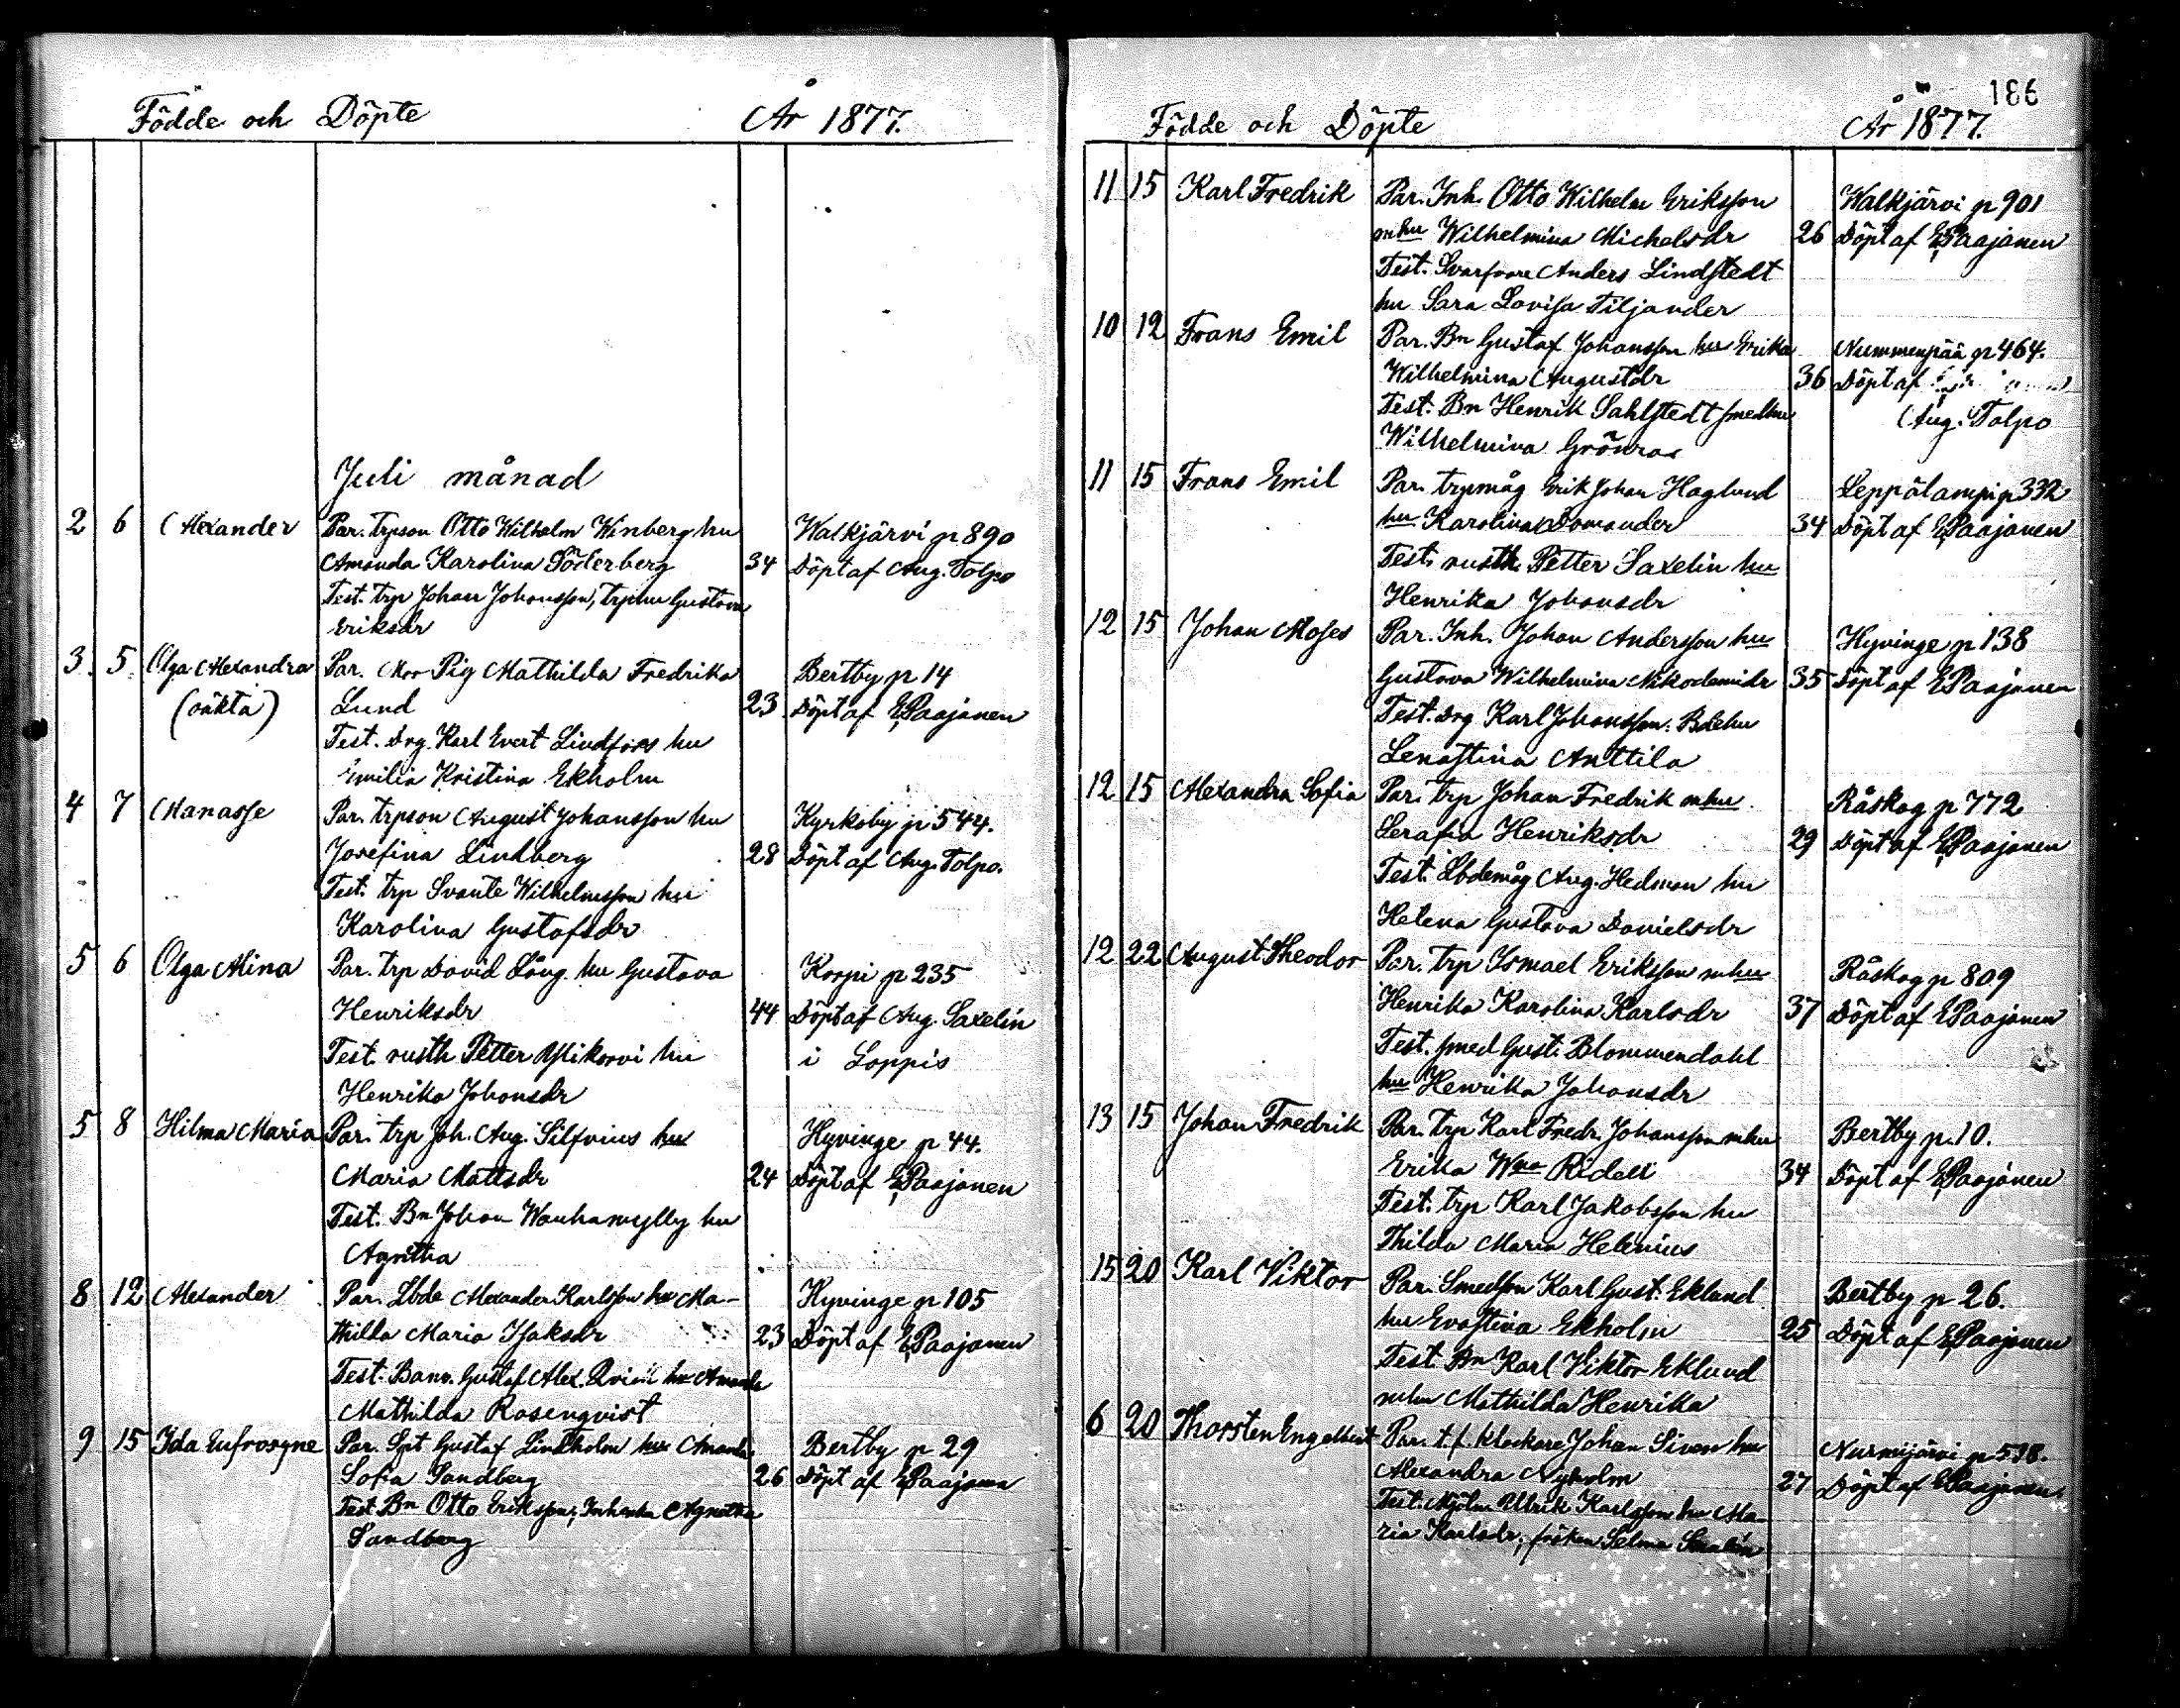 Födde och Döpte År 1877.
Juli månad
2 6 Alexander Par. trpson Otto Wilhelm Winberg hu Walkjärvi p 890
Amanda Karolina Söderberg 34 Döpt af Aug. Tolpo
Test. trp Johan Johansson, trphu Gustava
Eriksdr
3. 5. Olga Alexandra Par. Mor Pig Mathilda Fredrika Bertby p 14
(oäkta) Lund 23 Döpt af E Paajanen
Test. Drg. Karl Evert Lindfors hu
Emilia Kristina Ekholm
4 7 Manasse Par. trpson August Johansson hu Kyrkoby p 544.
Josefina Lindberg 28 Döpt af Aug. Tolpo.
Test. trp Svante Wilhelmsson hu
Karolina Gustafsdr
5 6 Olga Alina Par. trp David Lång. hu Gustava Korpi p 235
Henriksdr 44 Döpt af Aug. Saxelin
Test. rusth Petter hu i Loppis
Henrika Johansdr
5 8 Hilma Maria Par. trp Joh. Aug. Silfvius hu Hyvinge p 44.
Maria Mattsdr 24 Döpt af E Paajanen
Test. Bn Johan Wanhamylly hu
Agnitha
8 12 Alexander Par. Lbde Alexander Karlsson hu Ma- Hyvinge p 105
thilda Maria Isaksdr 23 Döpt af E Paajanen
Test. Banv. Gustaf Alex. hu Amanda
Mathilda Rosenqvist
9 15 Ida Eufrosyne Par. Spt Gustaf Lindholm hu Amanda Bertby p 29
Sofia Sandberg 26 Döpt af E Paajanen
Test Bn Otto Eriksson, Agnitha
Sandberg
186
Födde och Döpte År 1877.
11 15 Karl Fredrik Par. Inh. Otto Wilhelm Eriksson Walkjärvi p 901
mhu Wilhelmina Michelsdr 26 Döpt af E Paajanen
Test. Svarfvare Anders Lindstedt
hu Sara Lovisa Tiljander
10 12 Frans Emil Par. Bn Gustaf Johansson hu Erika Nummenpää p 464.
Wilhelmina Augustdr 36 Döpt af
Test. Bn Henrik Sahlstedt smedhu Aug. Tolpo
Wilhelmina Grönroos
11 15 Frans Emil Par. trpmåg Erik Johan Haglund Leppälampi p 332
hu Karolina Domander 34 Döpt af E Paajanen
Test. rusth. Petter Saxelin hu
Henrika Johansdr
12 15 Johan Moses Par. Inh. Johan Andersson hu Hyvinge p 138
Gustava Wilhelmina Nikodemidr 35 Döpt af E Paajanen
Test. Drg Karl Johansson. Bdehu
Lenastina Anttila
12 15 Alexandra Sofia Par. trp Johan Fredrik mhu Råskog p 772
Serafia Henriksdr 29 Döpt af E Paajanen
Test. Lbdemåg Aug. Hedman hu
Helena Gustava Danielsdr
12 22 August Theodor Par. trp Ismael Eriksson mhu Råskog p 809
Henrika Karolina Karlsdr 37 Döpt af E Paajanen
Test. smed Gust. Blommendahl
hu Henrika Johansdr
13 15 Johan Fredrik Par. trp Karl Fredr. Johansson mhu Bertby p. 10.
Erika Wna Ridell 34 Döpt af E Paajanen
Test. trp Karl Jakobsson hu
Thilda Maria Helenius
15 20 Karl Viktor Par. Smedson Karl Gust. Eklund Bertby p 26.
hu Evastina Ekholm 25 Döpt af E Paajanen
Test Bn Karl Viktor Eklund
mhu Mathilda Henrika
6 20 Thorsten Engelbert Par. t.f. klockare Johan Siven hu Nurmijärvi p 538.
Alexandra Nyholm 27 Döpt af E Paajanen
Test. Mjöln. Ullrik Karlsson hu Ma-
ria Karlsdr, fröken Selma